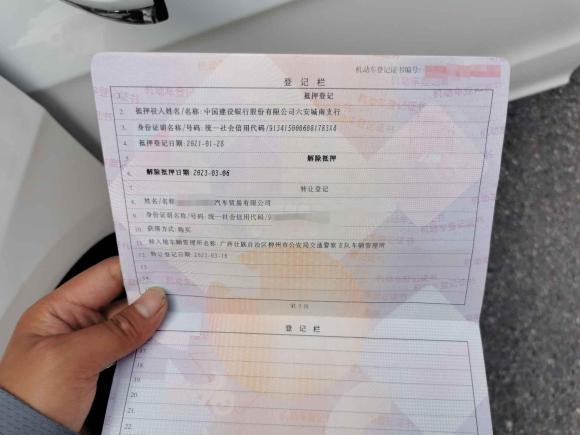 机动车登记证书编号:
登记栏
1. 抵押登记
2. 抵押权人姓名/名称:中国建设银行股份有限公司六安城南支行
3. 身份证明名称/号码:统一社会信用代码/9134150006081783X4
4. 抵押登记日期:2021-01-28
5. 解除抵押
6. 解除抵押日期:2023-03-06
7. 转让登记
8. 姓名/名称: 汽车贸易有限公司
9. 身份证明名称/号码:统一社会信用代码/9
10. 获得方式:购买
11. 转入地车辆管理所名称:广西壮族自治区柳州市公安局交通警察支队车辆管理所
12. 转让登记日期:2023-03-18
13.
14.
第3页
登记栏
17.
18.
19.
20.
21.
22.